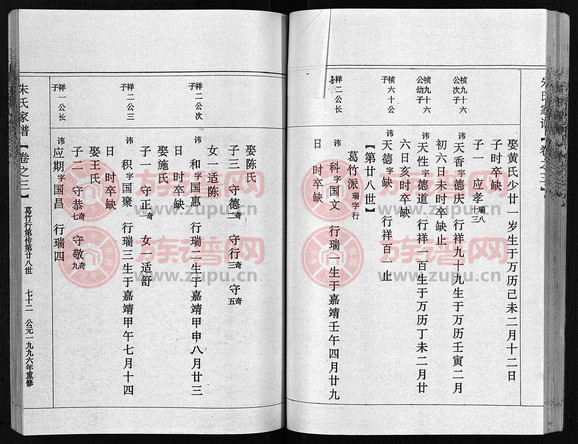 朱氏家谱【卷之三】
桢九十六公次子
桢九十六公幼子
桢六十公子
祥二公长子
娶黄氏少廿一岁生于万历己未二月十二日
子时卒缺
子一 应孝瑞八三
讳天香字德庆 行祥九十九生于万历壬寅二月
初六日未时卒缺止
讳天性字德道 行祥一百生于万历丁未二月廿
六日亥时卒缺
讳天德字缺 行祥百一止
【第廿八世】
葛竹派瑞字行
讳科字国文 行瑞一生于嘉靖壬午四月廿九
日 时卒缺
祥二公次子
祥二公三子
祥一公长子
娶陈氏
子三 守德奇二 守行奇三 守奇五
女一适陈
讳和字国惠 行瑞二生于嘉靖甲申八月廿三
日 时卒缺
娶施氏
子一 守正奇一 女一适舒
讳积字国聚 行瑞三生于嘉靖甲午七月十四
日 时卒缺
娶王氏
子二 守恭奇七 守敬奇九
讳应期字国昌 行瑞四
朱氏家谱【卷之三】 葛竹行第传第廿八世 七十二 公元一九九六年重修
族谱网
www.zupu.cn
族谱网
www.zupu.cn